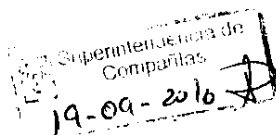 Superintendencia de
Compañías
19-09-2010